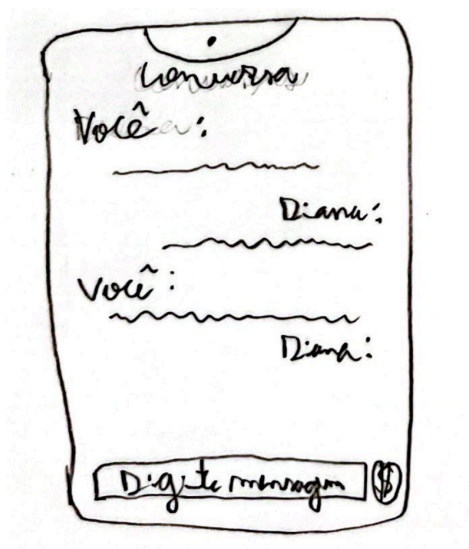 Conversa
Você:
Diana:
Você:
Diana:
Digite mensagem
$